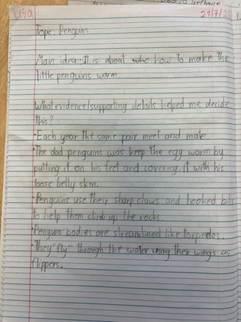 29/7/
Tope: Penguin
Main idea: It is about how to make the
little penguins warm.
What evidence/supporting details helped me decide
this?
• Each year the same pair meet and mate
• The dad penguins was keep the egg warm by
putting it on his feet and covering it with his
loose belly skin.
• Penguins use their sharp claws and hooked
to help them climb up the rocks
• Penguins bodies are streamlined like torpedoes.
• They "fly" through the water using their wings as
flippers.